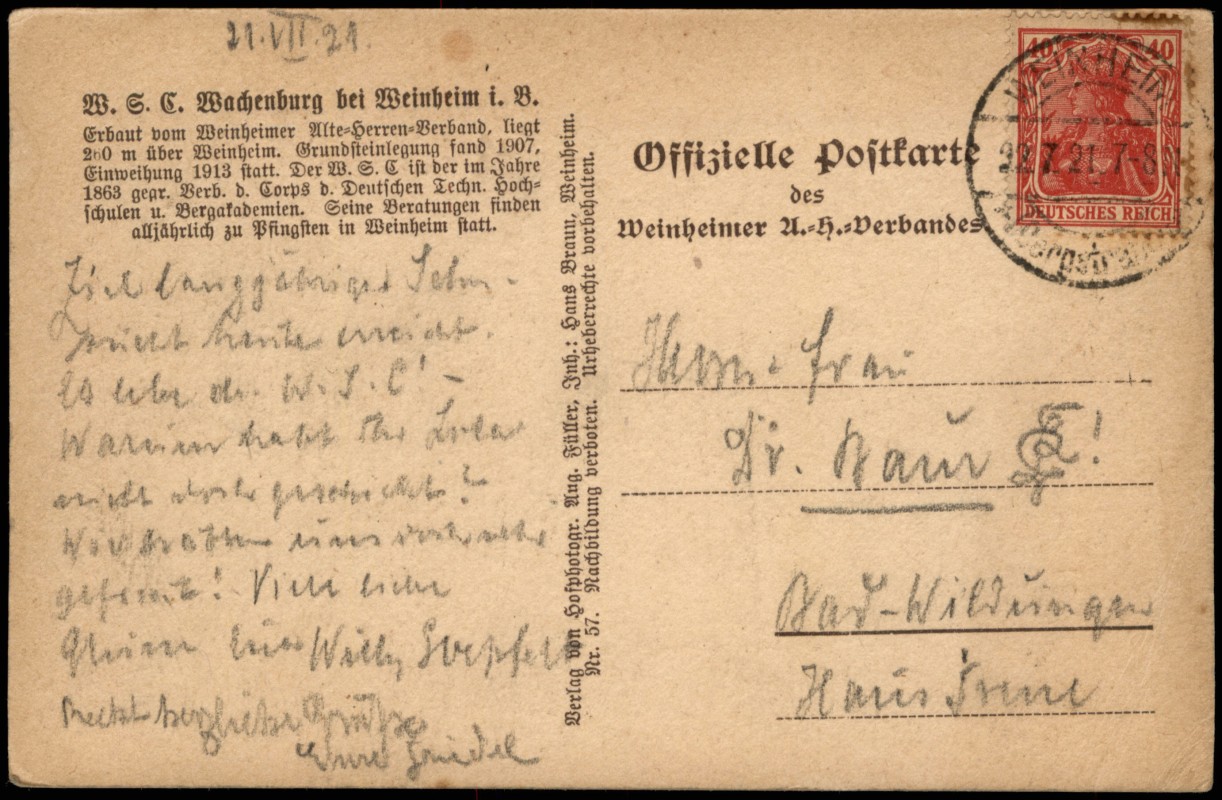 21.VII.21.
W. S. C. Wachenburg bei Weinheim i. B.
Erbaut vom Weinheimer Alte-Herren-Verband, liegt
260 m über Weinheim. Grundsteinlegung fand 1907,
Einweihung 1913 statt. Der W. S. C ist der im Jahre
1863 gegr. Verb. d. Corps d. Deutschen Techn. Hoch-
schulen u. Bergakademien. Seine Beratungen finden
alljährlich zu Pfingsten in Weinheim statt.
Ziel langjähriger Sehn-
sucht heute erreicht.
Es lebe der W. S. C! -
Warum habt Ihr
nicht geschickt?
Wir hatten uns
gefreut! Viele liebe
Grüsse Euer Willy
Recht herzliche Grüße
Eure
Verlag von Hofphotogr. Aug. Füller, Inh.: Hans Braun, Weinheim.
Nr. 57. Nachbildung verboten. Urheberrechte vorbehalten.
Offizielle Postkarte
des
Weinheimer A.-H.-Verbandes
40 40
DEUTSCHES REICH
WEINHEIM
22.7.21.7-8
Frau
Dr. Baur
Bad-Wildungen
Haus Irene